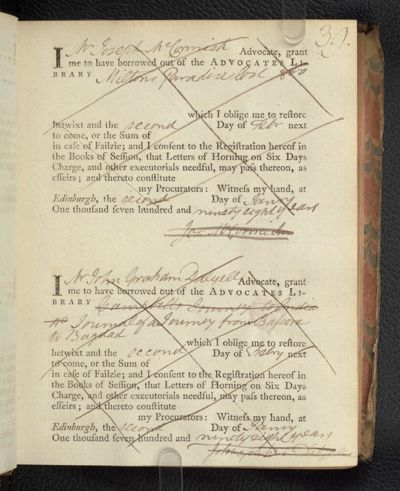 39.
I Mr Joseph McCormick Advocate, grant
me to have borrowed out of the ADVOCATES LI-
BRARY Miltons Paradise lost 8vo
which I oblige me to reſtore
betwixt and the second Day of Febr next
to come, or the Sum of
in caſe of Failzie; and I conſent to the Regiſtration hereof in
the Books of Seſſion, that Letters of Horning on Six Days
Charge, and other executorials needful, may paſs thereon, as
effeirs; and thereto conſtitute
my Procurators: Witneſs my hand, at
Edinburgh, the second Day of Janry
One thouſand ſeven hundred and ninety eight years
Jos: McCormick
I Mr John Graham Dalyell Advocate, grant
me to have borrowed out of the ADVOCATES LI-
BRARY Campbells Journey to India
Journal of a Journey from Bassora
to Bagdad which I oblige me to reſtore
betwixt and the second Day of Febry next
to come, or the Sum of
in caſe of Failzie; and I conſent to the Regiſtration hereof in
the Books of Seſſion, that Letters of Horning on Six Days
Charge, and other executorials needful, may paſs thereon, as
effeirs; and thereto conſtitute
my Procurators: Witneſs my hand, at
Edinburgh, the second Day of Janry
One thouſand ſeven hundred and ninety eight years